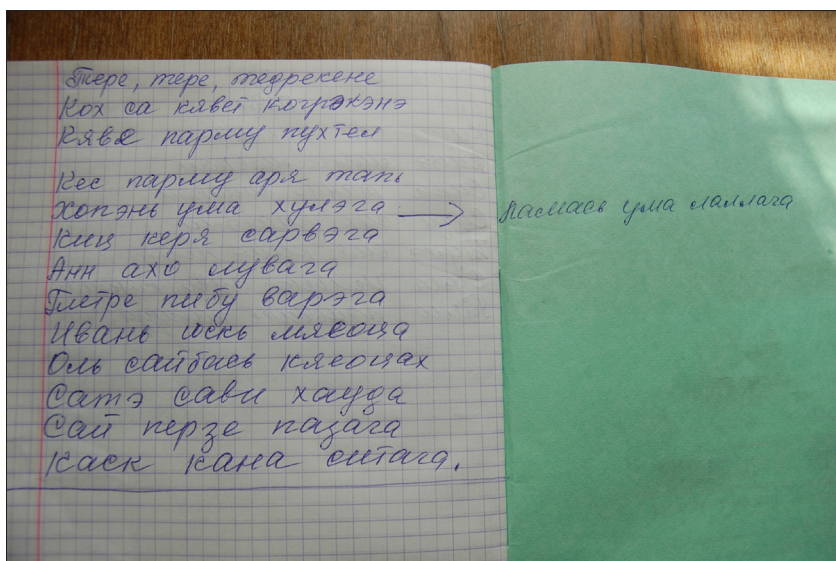 Тере, тере, тедрекене
Кох са кявет когрэкэнэ
Кявя парму пухтел
Кес парму аря тапь
Хопэнь ума хулэга → Ламась ума лаллага
Киц керя сарвэга
Анн ахо лувага
Петре пибу варэга
Ивань искь мясоца
Оль сайбась кясоцах
Сатэ сави хауда
Сай перзе пазага
Каск кана ситага.